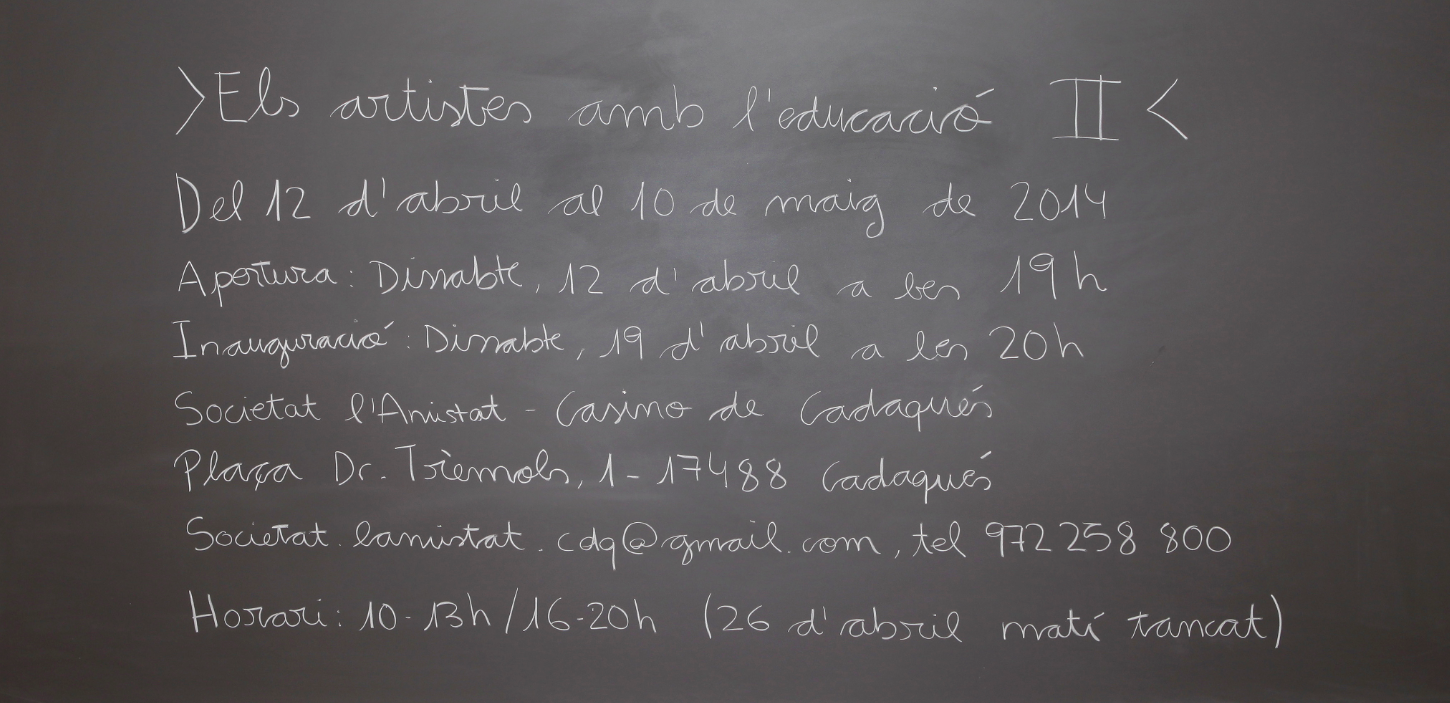 >Els artistes amb l'educació II<
Del 12 d'abril al 10 de maig de 2014
Apertura: Dissabte, 12 d'abril a les 19h
Inauguració: Dissabte, 19 d'abril a les 20h
Societat l'Amistat - Casino de Cadaqués
Plaça Dr. Trèmols, 1-17488 Cadaqués
Societat.lamistat.cdq@gmail.com, tel 972 258 800
Horari: 10-13h/16-20h (26 d'abril matí tancat)